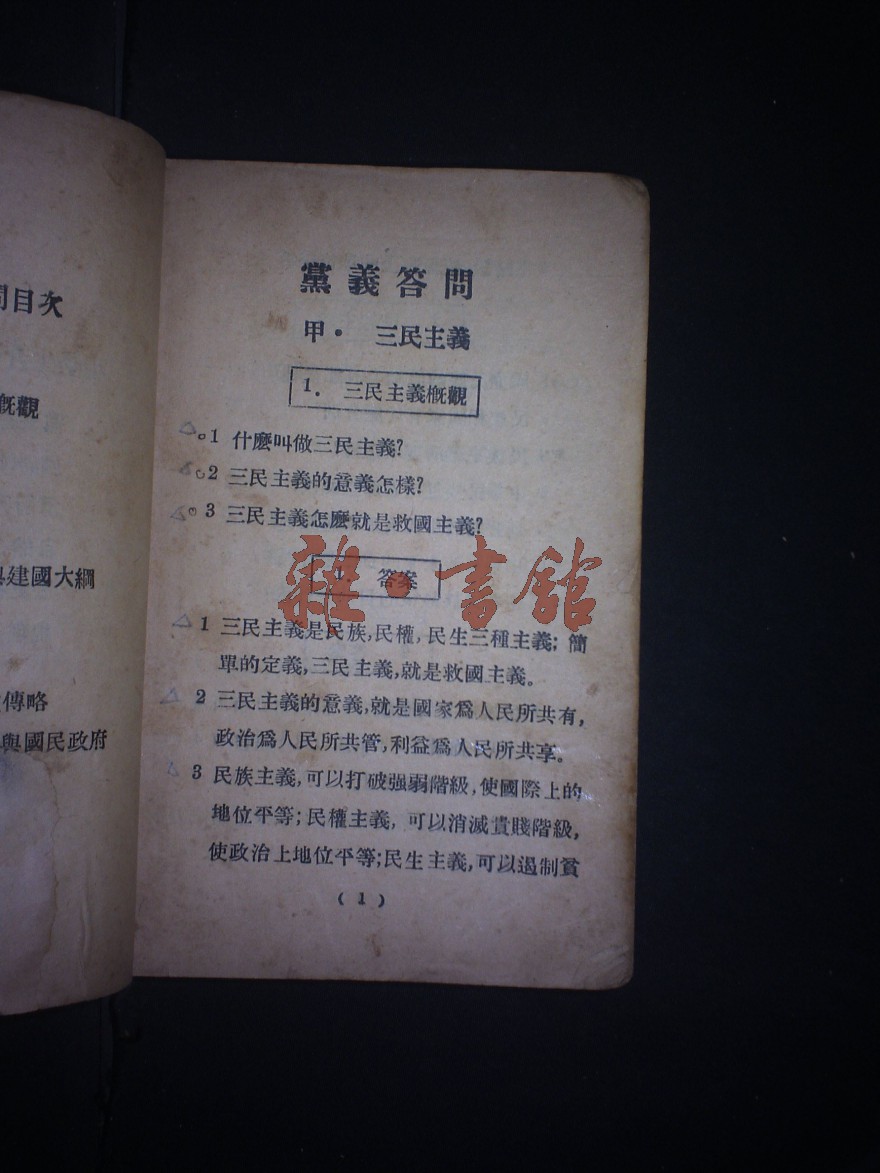 問目次
概觀
與建國大綱
傳略
與國民政府
黨義答問
甲· 三民主義
1. 三民主義概觀
1 什麼叫做三民主義?
2 三民主義的意義怎樣?
3 三民主義怎麼就是救國主義?
1. 答案
1 三民主義是民族,民權,民生三種主義;簡
單的定義,三民主義,就是救國主義。
2 三民主義的意義,就是國家爲人民所共有,
政治爲人民所共管,利益爲人民所共享。
3 民族主義,可以打破强弱階級,使國際上的
地位平等;民權主義,可以消滅貴賤階級,
使政治上地位平等;民生主義,可以遏制貧
(1)
雜·書館